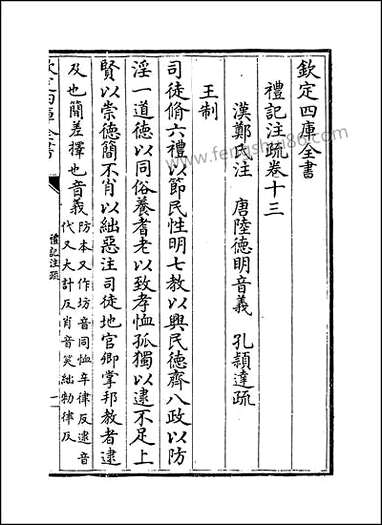 欽定四庫全書
禮記注疏卷十三
漢鄭氏注 唐陸德明音義 孔穎達疏
王制
司徒脩六禮以節民性明七教以興民德齊八政以防
淫一道德以同俗養耆老以致孝恤孤獨以逮不足上
賢以崇德簡不肖以絀惡注司徒地官卿掌邦教者逮
及也簡差擇也音義防本又作坊音同恤辛律反逮音
代又大計反肖音笑絀勑律反
欽定四庫全書
禮記注疏
一
www.fengshui86.com